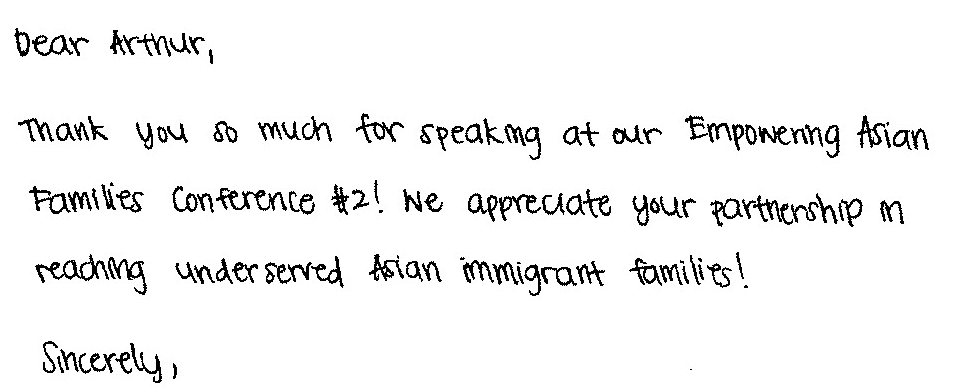 Dear Arthur,
Thank you so much for speaking at our Empowering Asian
Families Conference #2! We appreciate your partnership in
reaching underserved Asian immigrant families!
Sincerely,